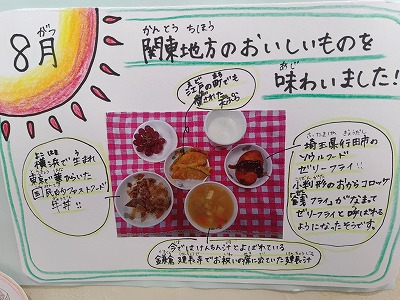 8月
がつ
かんとう ちほう
関東地方のおいしいものを
あじ
味わいました!
江戸の町でも
天ぷら
横浜で生まれ
東京で築いた
国民的ファストフード
牛丼!!
埼玉県行田市の
ソウルフード
ゼリーフライ!!
小判形のおからコロッケ
フライ」がなまって
ゼリーフライと呼ばれる
ようになったそうです。
今ではけんちん汁とよばれている
鎌倉建長寺でお祝いの席に出ていた建長汁